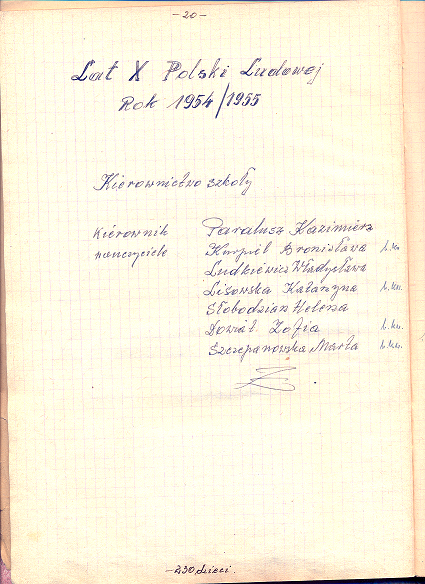 -20-
Lat X Polski Ludowej
Rok 1954/1955
Kierownictwo szkoły
kierownik Paralusz Kazimierz
nauczyciele Kurpiel Bronisława
Ludkiewicz Władysława
Lisowska Katarzyna
Słobodzian Helena
Dowiat Zofia
Szczepanowska Marta
-230 dzieci.